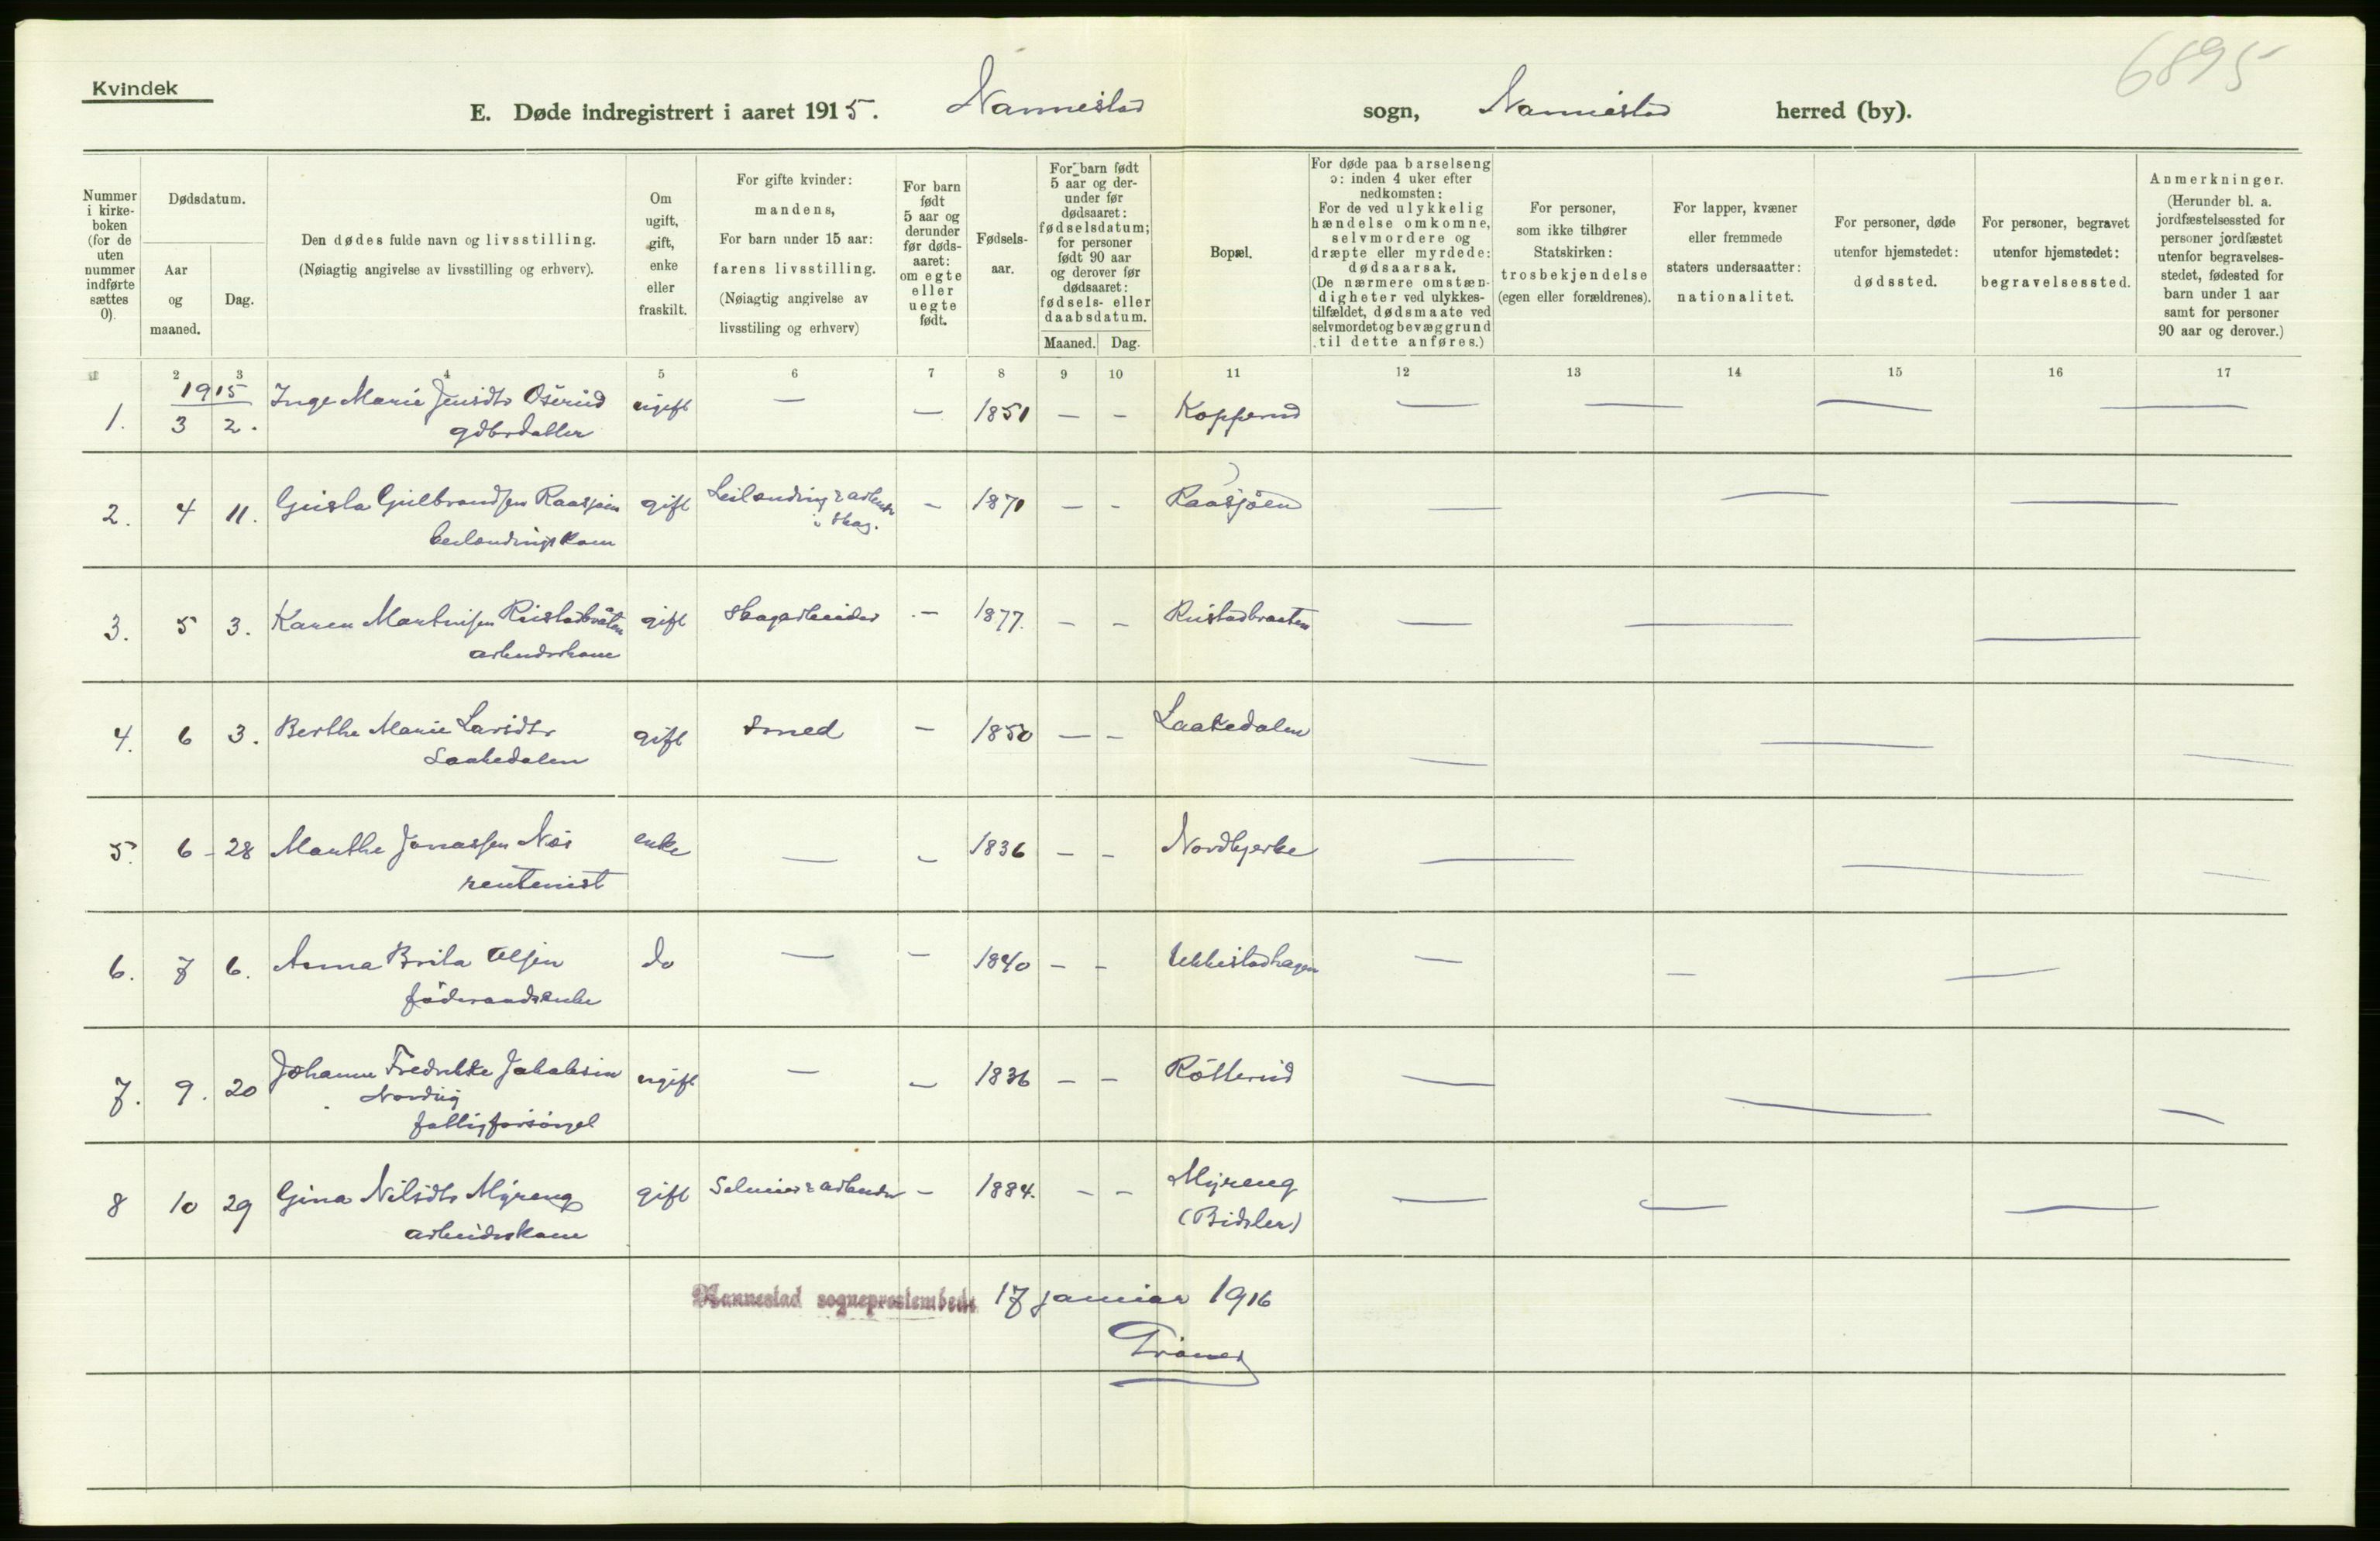 6895
Kvindek
E. Døde indregistrert i aaret 1915. Nannestad sogn, Nannestad herred (by).
Nummer i kirke-boken (for de uten nummer indførte sættes 0).
Dødsdatum.
Aar og maaned.
Dag.
Den dødes fulde navn og livsstilling.
(Nøiagtig angivelse av livsstilling og erhverv).
Om ugift, gift, enke eller fraskilt.
For gifte kvinder:
mandens,
For barn under 15 aar:
farens livsstilling.
(Nøiagtig angivelse av
livsstiling og erhverv)
For barn født 5 aar og derunder før døds-aaret: om egte eller uegte født.
Fødsels-aar.
For barn født 5 aar og der-under før dødsaaret: fødselsdatum; for personer født 90 aar og derover før dødsaaret: fødsels- eller daabsdatum.
Maaned. Dag.
Bopæl.
For døde paa barselseng
ɔ: inden 4 uker efter
nedkomsten:
For de ved ulykkelig
hændelse omkomne,
selvmordere og
dræpte eller myrdede:
dødsaarsak.
(De nærmere omstæn-
digheter ved ulykkes-
tilfældet, dødsmaate ved
selvmordet og bevæggrund
til dette anføres.)
For personer,
som ikke tilhører
Statskirken:
trosbekjendelse
(egen eller forældrenes).
For lapper, kvæner
eller fremmede
staters undersaatter:
nationalitet.
For personer, døde
utenfor hjemstedet:
dødssted.
For personer, begravet
utenfor hjemstedet:
begravelsessted.
Anmerkninger.
(Herunder bl. a.
jordfæstelsessted for
personer jordfæstet
utenfor begravelses-
stedet, fødested for
barn under 1 aar
samt for personer
90 aar og derover.)
2 3 4 5 6 7 8 9 10 11 12 13 14 15 16 17
1915
1. 3 2. Inge Marie Jensdtr Oserud ugift — — 1851 — — Kopperud — — — —
gdbrdatter
2. 4 11. Gulbrandsen Raasjøen gift Leilænding & arbeider — 1871 — - Raasjöen — — —
i skog.
leilændingskone
3. 5 3. Karen Martinsen Rustadbråten gift skogarbeider — 1877. — — Rustadbraaten — — —
arbeiderkone
4. 6 3. Berthe Marie Larsdtr gift Smed — 1850 — — Laakedalen — — —
Laakedalen
5. 6 - 28 Marthe Jonassen Næs enke — — 1836 — — Nordbjerke — — —
rentenist
6. 7 6. Anna Brita Olsen do — — 1840 — — Ukkestadhagen — — —
föderaadsenke
7. 9. 20 Johanne Fredrikke Jakobsen ugift — — 1836 — — Rötterud — — —
fattigforsörget
8 10 29 Gina Nilsdtr Myreng gift & arbeider — 1884. — — Myreng — — —
(Bidsler)
arbeiderskone
Nannestad sogneprestembede 17 januar 1916